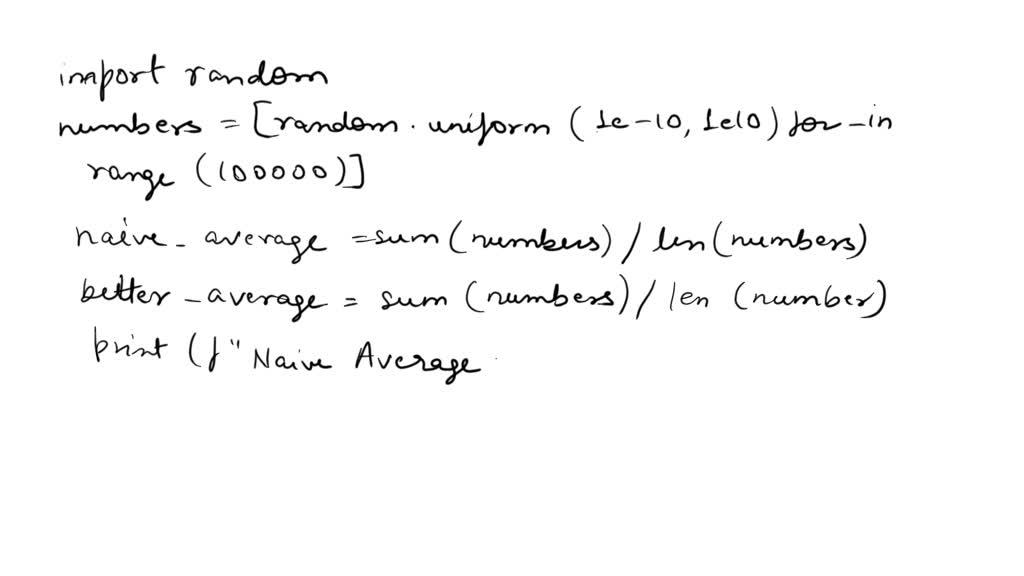 import random
numbers = [random.uniform (1e-10, 1e10) for _ in
range (100000)]
naive_average = sum (numbers) / len (numbers)
better_average = sum (numbers) / len (number)
print (f" Naive Average